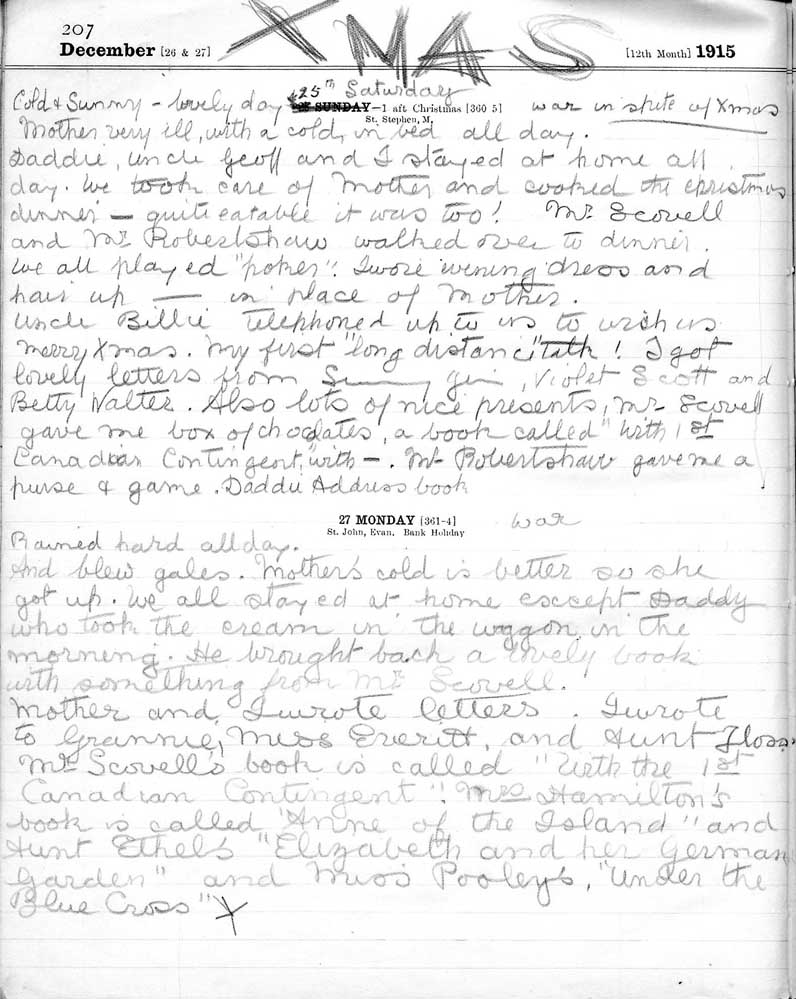 207
XMAS
December [26 & 27]
[12th Month] 1915
25th Saturday
Cold & Sunny - lovely day
SUNDAY—1 aft Christmas [360-5]
war in spite of Xmas
St. Stephen, M.
Mother very ill, with a cold, in bed all day.
Daddie, Uncle Geoff and I stayed at home all
day. We took care of Mother and cooked the christmas
dinner — quite eatable it was too! Mr Scovell
and Mr Robertshaw walked over to dinner.
We all played "poker". I wore evening dress and
hair up — in place of Mother.
Uncle Billie telephoned up to us to wish us
merry Xmas. My first "long distance" talk! I got
lovely letters from Sunny Jim, Violet Scott and
Betty Walter. Also lots of nice presents, Mr Scovell
gave me box of choclates, a book called "With 1st
Canadian Contingent," with —. Mr Robertshaw gave me a
purse & game. Daddie Address book
27 MONDAY [361-4]
war
St. John, Evan. Bank Holiday
Rained hard all day.
And blew gales. Mother's cold is better so she
got up. We all stayed at home except Daddy
who took the cream in the waggon in the
morning. He brought back a lovely book
with something from Mr Scovell.
Mother and I wrote letters. I wrote
to Grannie, Miss Everitt, and Aunt Floss
Mr Scovell's book is called "With the 1st
Canadian Contingent". Mrs Hamilton's
book is called "Anne of the Island" and
Aunt Ethel's "Elizabeth and her German
Garden" and Miss Pooley's, "Under the
Blue Cross"